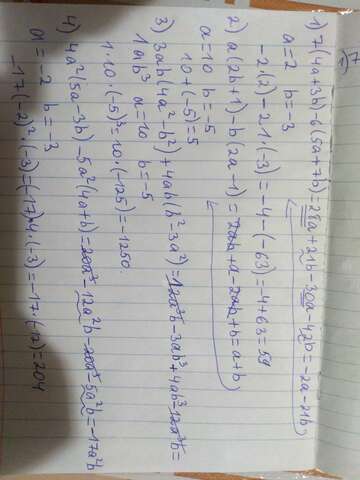 1) 7
1) 7(4a+3b)-6(5a+7b)=28a+21b-30a-42b=-2a-21b,
a=2 b=-3
-2·(2)-21·(-3)=-4-(-63)=-4+63=59
2) a(2b+1)-b(2a-1)=2ab+a-2ab+b=a+b,
a=10 b=-5
10+(-5)=5
3) 3ab(4a²-b²)+4ab(b²-3a²)=12a³b-3ab³+4ab³-12a³b=
1ab³ a=10 b=-5
1·10·(-5)³=10·(-125)=-1250.
4) 4a²(5a-3b)-5a²(4a+b)=20a³-12a²b-20a³-5a²b=-17a²b
a=-2 b=-3
-17·(-2)²·(-3)=(-17)·4·(-3)=-17·(-12)=204